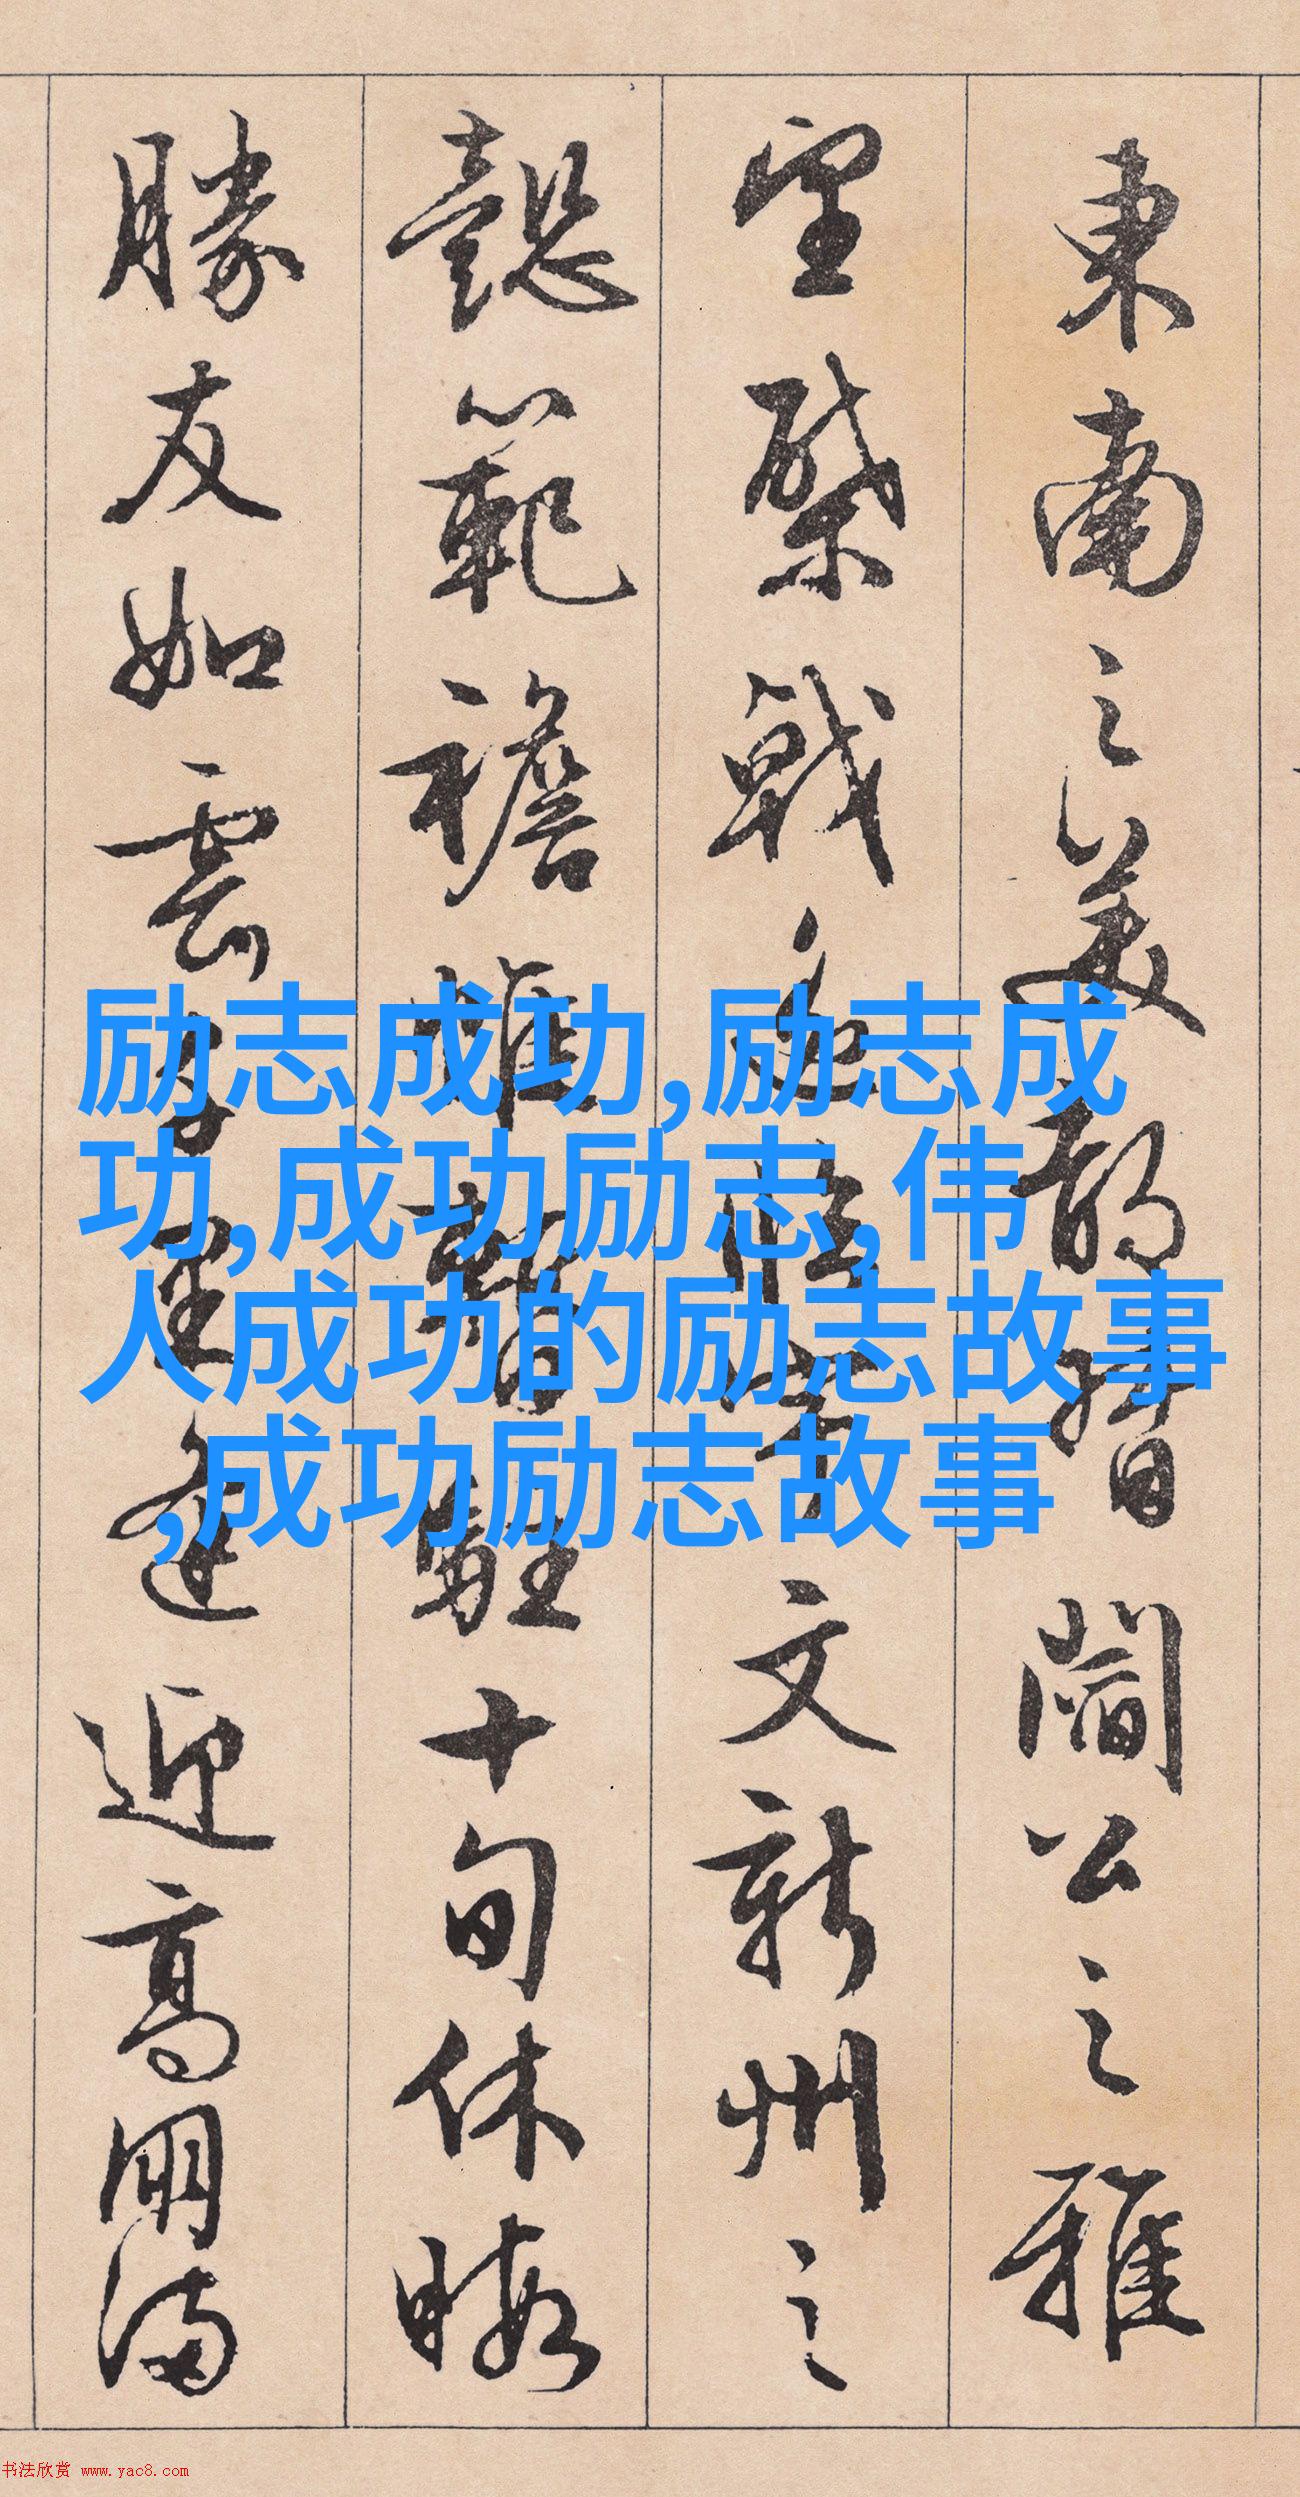 東南之美都督閻公之雅
望棨戟遙臨宇文新州之
懿範襜帷暫駐十旬休暇
勝友如雲千里逢迎高朋滿
励志成功,励志成
功,成功励志,伟
人成功的励志故事
,成功励志故事
书法欣赏 www.yac8.com